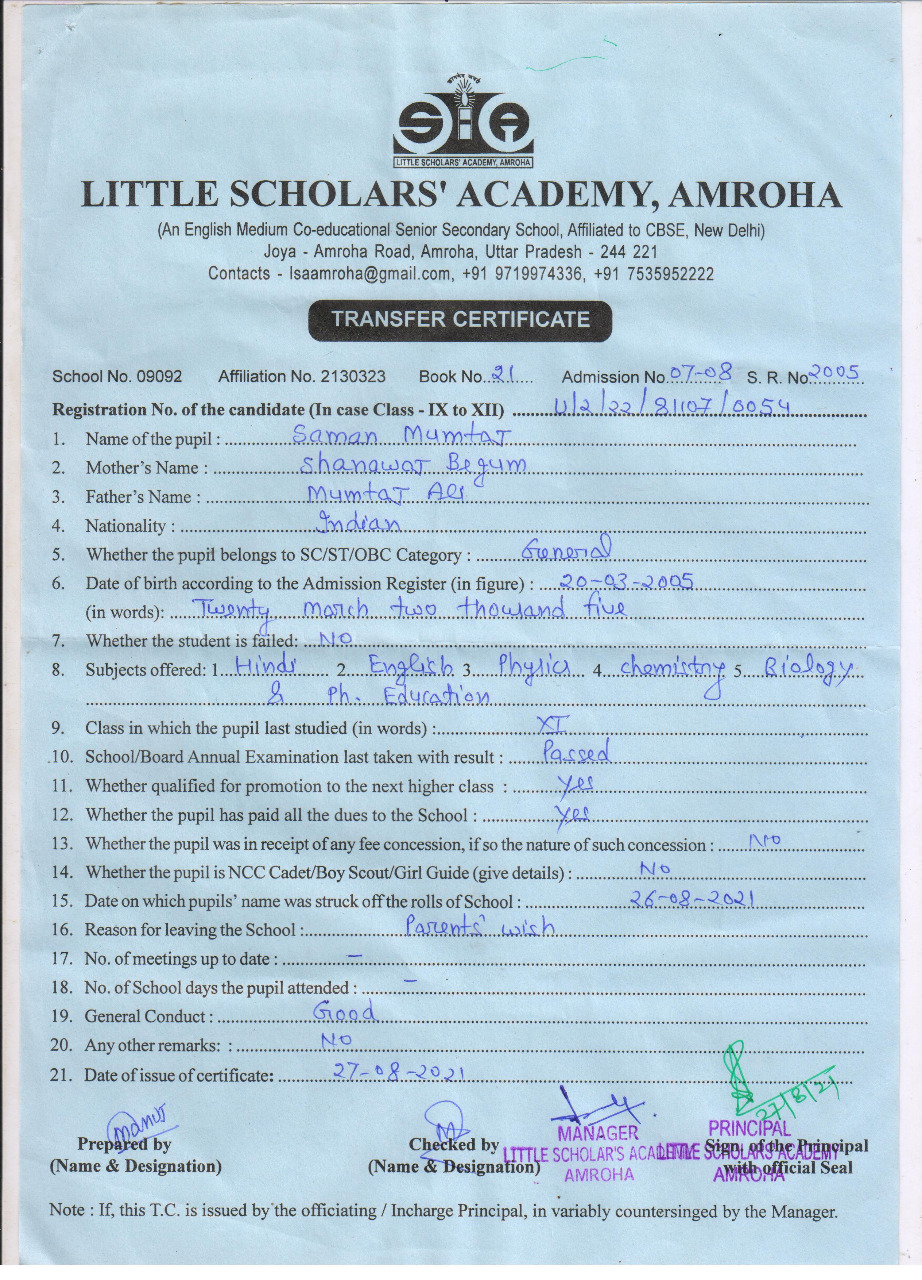 LITTLE SCHOLARS' ACADEMY, AMROHA
LITTLE SCHOLARS' ACADEMY, AMROHA
(An English Medium Co-educational Senior Secondary School, Affiliated to CBSE, New Delhi)
Joya - Amroha Road, Amroha, Uttar Pradesh - 244 221
Contacts - lsaamroha@gmail.com, +91 9719974336, +91 7535952222
TRANSFER CERTIFICATE
School No. 09092 Affiliation No. 2130323 Book No. 21 Admission No. 07-08 S. R. No. 2005
Registration No. of the candidate (In case Class - IX to XII) U/2/22/81107/0054
1. Name of the pupil : Saman Mumtaj
2. Mother's Name : Shanawaj Begum
3. Father's Name : Mumtaj Ali
4. Nationality : Indian
5. Whether the pupil belongs to SC/ST/OBC Category : General
6. Date of birth according to the Admission Register (in figure) : 20-03-2005
(in words): Twenty march two thousand five
7. Whether the student is failed: NO
8. Subjects offered: 1. Hindi 2. English 3. Physics 4. chemistry 5. Biology
& Ph. Education
9. Class in which the pupil last studied (in words) : XI
10. School/Board Annual Examination last taken with result : Passed
11. Whether qualified for promotion to the next higher class : yes
12. Whether the pupil has paid all the dues to the School : yes
13. Whether the pupil was in receipt of any fee concession, if so the nature of such concession : No
14. Whether the pupil is NCC Cadet/Boy Scout/Girl Guide (give details) : No
15. Date on which pupils' name was struck off the rolls of School : 26-08-2021
16. Reason for leaving the School : Parents' wish
17. No. of meetings up to date : –
18. No. of School days the pupil attended : –
19. General Conduct : Good
20. Any other remarks: : No
21. Date of issue of certificate: 27-08-2021
27/8/21
MANAGER PRINCIPAL
Prepared by Checked by Sign. of the Principal
LITTLE SCHOLAR'S ACADEMY LITTLE SCHOLARS ACADEMY
(Name & Designation) (Name & Designation) with official Seal
AMROHA AMROHA
Note : If, this T.C. is issued by the officiating / Incharge Principal, in variably countersinged by the Manager.